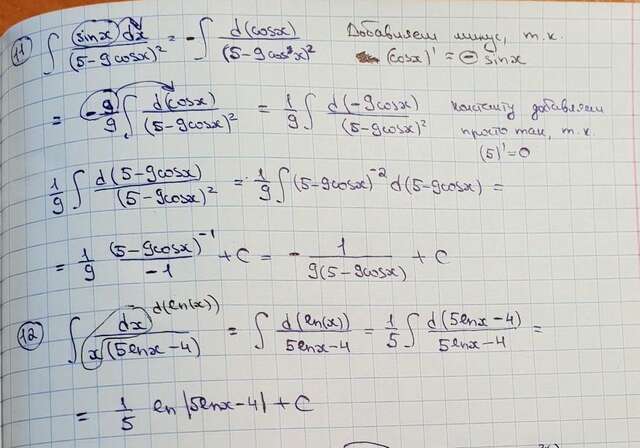 11 ∫ (sinx) dx / (5-9cosx)² = - ∫ d(cosx) / (5-9cosx)² Добавляем минус, т.к. (cosx)' = - sinx
= -9/9 ∫ d(cosx) / (5-9cosx)² = 1/9 ∫ d(-9cosx) / (5-9cosx)² константу добавляем
просто так, т.к.
(5)' = 0
1/9 ∫ d(5-9cosx) / (5-9cosx)² = 1/9 ∫ (5-9cosx)⁻² d(5-9cosx) =
= 1/9 (5-9cosx)⁻¹ / -1 + C = - 1 / 9(5-9cosx) + C
d(ln(x))
12 ∫ dx / x(5lnx-4) = ∫ d(ln(x)) / 5lnx-4 = 1/5 ∫ d(5lnx-4) / 5lnx-4 =
= 1/5 ln|5lnx-4| + C